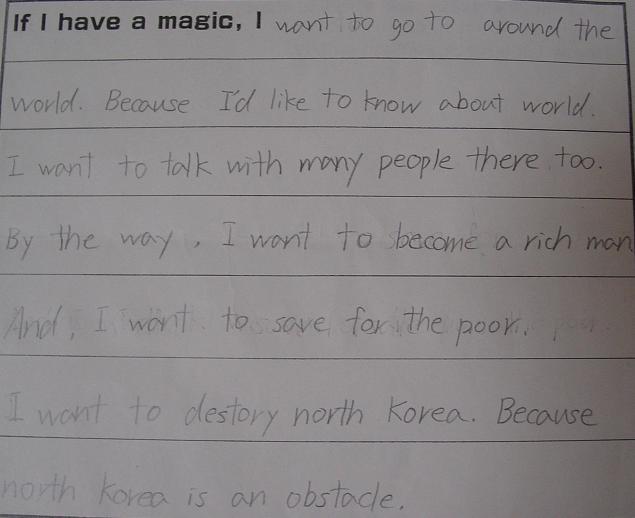 If I have a magic, I want to go to around the
world. Because I'd like to know about world.
I want to talk with many people there too.
By the way, I want to become a rich man
And, I want to save for the poor.
I want to destory north Korea. Because
north Korea is an obstacle.